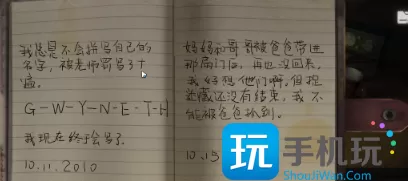 我总是不会拼写自己的
名字，被老师罚写了十
遍。
G-W-Y-N-E-T-H
我现在终于会写了
10.11.2010
妈妈和哥哥被爸爸带进
那扇门后，再也没回来，
我好想他们啊。但捉
迷藏还没有结束，我不
能被爸爸抓到。
10.13
玩 手机玩
ShouJiWan.Com